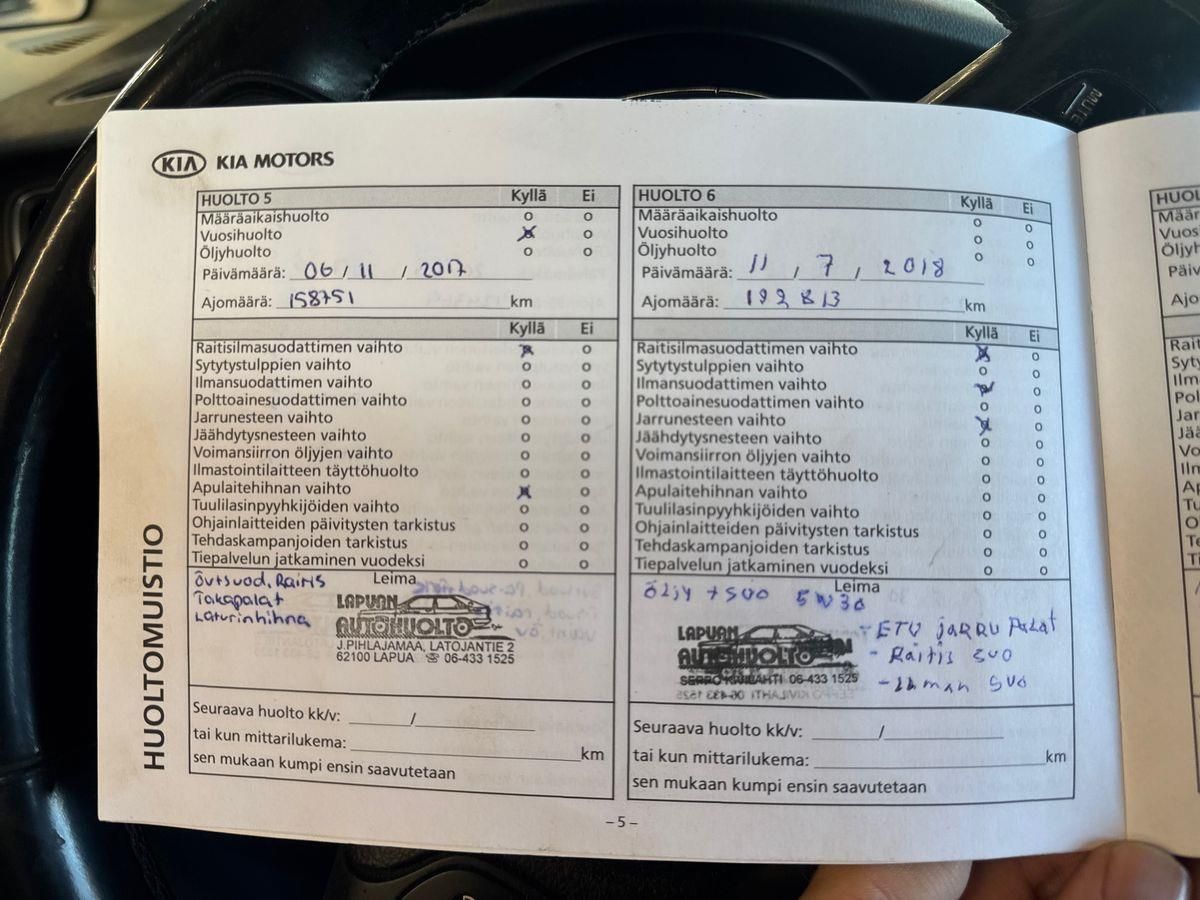 MUTE
KIA KIA MOTORS
HUOLTOMUISTIO
HUOLTO 5 Kyllä Ei
Määräaikaishuolto o o
Vuosihuolto x o
Öljyhuolto o o
Päivämäärä: 06 / 11 / 2017
Ajomäärä: 158751 km
Kyllä Ei
Raitisilmasuodattimen vaihto x o
Sytytystulppien vaihto o o
Ilmansuodattimen vaihto o o
Polttoainesuodattimen vaihto o o
Jarrunesteen vaihto o o
Jäähdytysnesteen vaihto o o
Voimansiirron öljyjen vaihto o o
Ilmastointilaitteen täyttöhuolto o o
Apulaitehihnan vaihto x o
Tuulilasinpyyhkijöiden vaihto o o
Ohjainlaitteiden päivitysten tarkistus o o
Tehdaskampanjoiden tarkistus o o
Tiepalvelun jatkaminen vuodeksi o o
Leima
Raitis
Takapalat
Laturinhihna
LAPUAN
AUTOHUOLTO
J.PIHLAJAMAA, LATOJANTIE 2
62100 LAPUA ☎ 06-433 1525
Seuraava huolto kk/v: ______/__________
tai kun mittarilukema: ____________________ km
sen mukaan kumpi ensin saavutetaan
HUOLTO 6 Kyllä Ei
Määräaikaishuolto o o
Vuosihuolto o o
Öljyhuolto o o
Päivämäärä: 11 / 7 / 2018
Ajomäärä: 192813 km
Kyllä Ei
Raitisilmasuodattimen vaihto x o
Sytytystulppien vaihto o o
Ilmansuodattimen vaihto x o
Polttoainesuodattimen vaihto o o
Jarrunesteen vaihto x o
Jäähdytysnesteen vaihto o o
Voimansiirron öljyjen vaihto o o
Ilmastointilaitteen täyttöhuolto o o
Apulaitehihnan vaihto o o
Tuulilasinpyyhkijöiden vaihto o o
Ohjainlaitteiden päivitysten tarkistus o o
Tehdaskampanjoiden tarkistus o o
Tiepalvelun jatkaminen vuodeksi o o
Leima
Öljy + suo 5W30
- ETU jarru Palat
- Raitis suo
- ilman suo
LAPUAN
AUTOHUOLTO
SEPPO KIVILAHTI 06-433 1525
Seuraava huolto kk/v: ______/__________
tai kun mittarilukema: ____________________ km
sen mukaan kumpi ensin saavutetaan
– 5 –